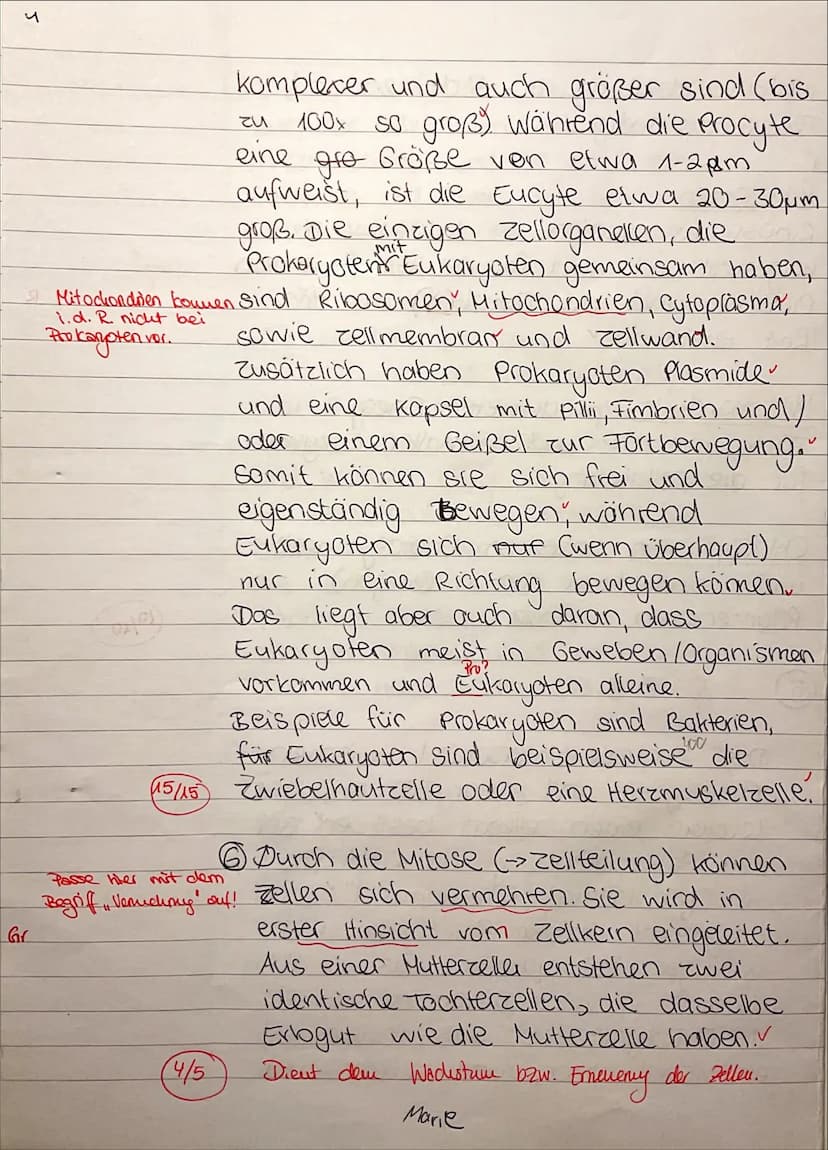 4
komplexer und auch größer sind (bis
zu 100x so groß). Während die Procyte
eine gro Größe von etwa 1-2µm
aufweist, ist die Eucyte etwa 20-30µm
groß. Die einzigen Zellorganellen, die
mit
Prokaryoten Eukaryoten gemeinsam haben,
Mitochondrien kommen sind Ribosomen, Mitochondrien, Cytoplasma,
i.d.R. nicht bei
Prokaryoten vor. sowie Zellmembran und Zellwand.
Zusätzlich haben Prokaryoten Plasmide
und eine Kapsel mit Pilii, Fimbrien und/
oder einem Geißel zur Fortbewegung.
Somit können sie sich frei und
eigenständig bewegen, während
Eukaryoten sich nur (wenn überhaupt)
nur in eine Richtung bewegen können.
Das liegt aber auch daran, dass
Eukaryoten meist in Geweben/Organismen
Pro?
vorkommen und Eukaryoten alleine.
Beispiele für Prokaryoten sind Bakterien,
für Eukaryoten sind beispielsweise die
15/15 Zwiebelhautzelle oder eine Herzmuskelzelle.
6 Durch die Mitose (→Zellteilung) können
Passe hier mit dem
Begriff „Vermehrung" auf! Zellen sich vermehren. Sie wird in
Gr erster Hinsicht vom Zellkern eingeleitet.
Aus einer Mutterzelle entstehen zwei
identische Tochterzellen, die dasselbe
Erbgut wie die Mutterzelle haben.
4/5 Dient dem Wachstum bzw. Erneuerung der Zellen.
Marie